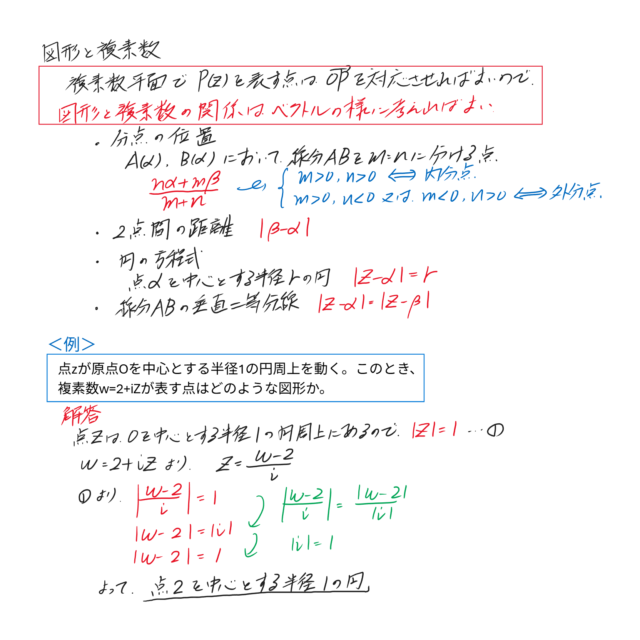 図形と複素数
複素数平面で P(z)を表す点は OP→を対応させればよいので、
図形と複素数の関係は ベクトルの様に考えればよい
・分点の位置
A(α), B(β)において、線分ABをm:nに分ける点
(nα+mβ)/(m+n)
m>0, n>0 ⇔ 内分点.
m>0, n<0 又は m<0, n>0 ⇔ 外分点.
・2点間の距離 |β-α|
・円の方程式
点αを中心とする半径rの円 |z-α|=r
・線分ABの垂直二等分線 |z-α|=|z-β|
<例>
点zが原点Oを中心とする半径1の円周上を動く。このとき、
複素数w=2+iZが表す点はどのような図形か。
解答
点zは、Oを中心とする半径1の円周上にあるので、|z|=1 …①
w=2+iz より、 z=(w-2)/i
①より、 |(w-2)/i|=1
|(w-2)/i|=|w-2|/|i|
|w-2|=|i|
|i|=1
|w-2|=1
よって、点2を中心とする半径1の円